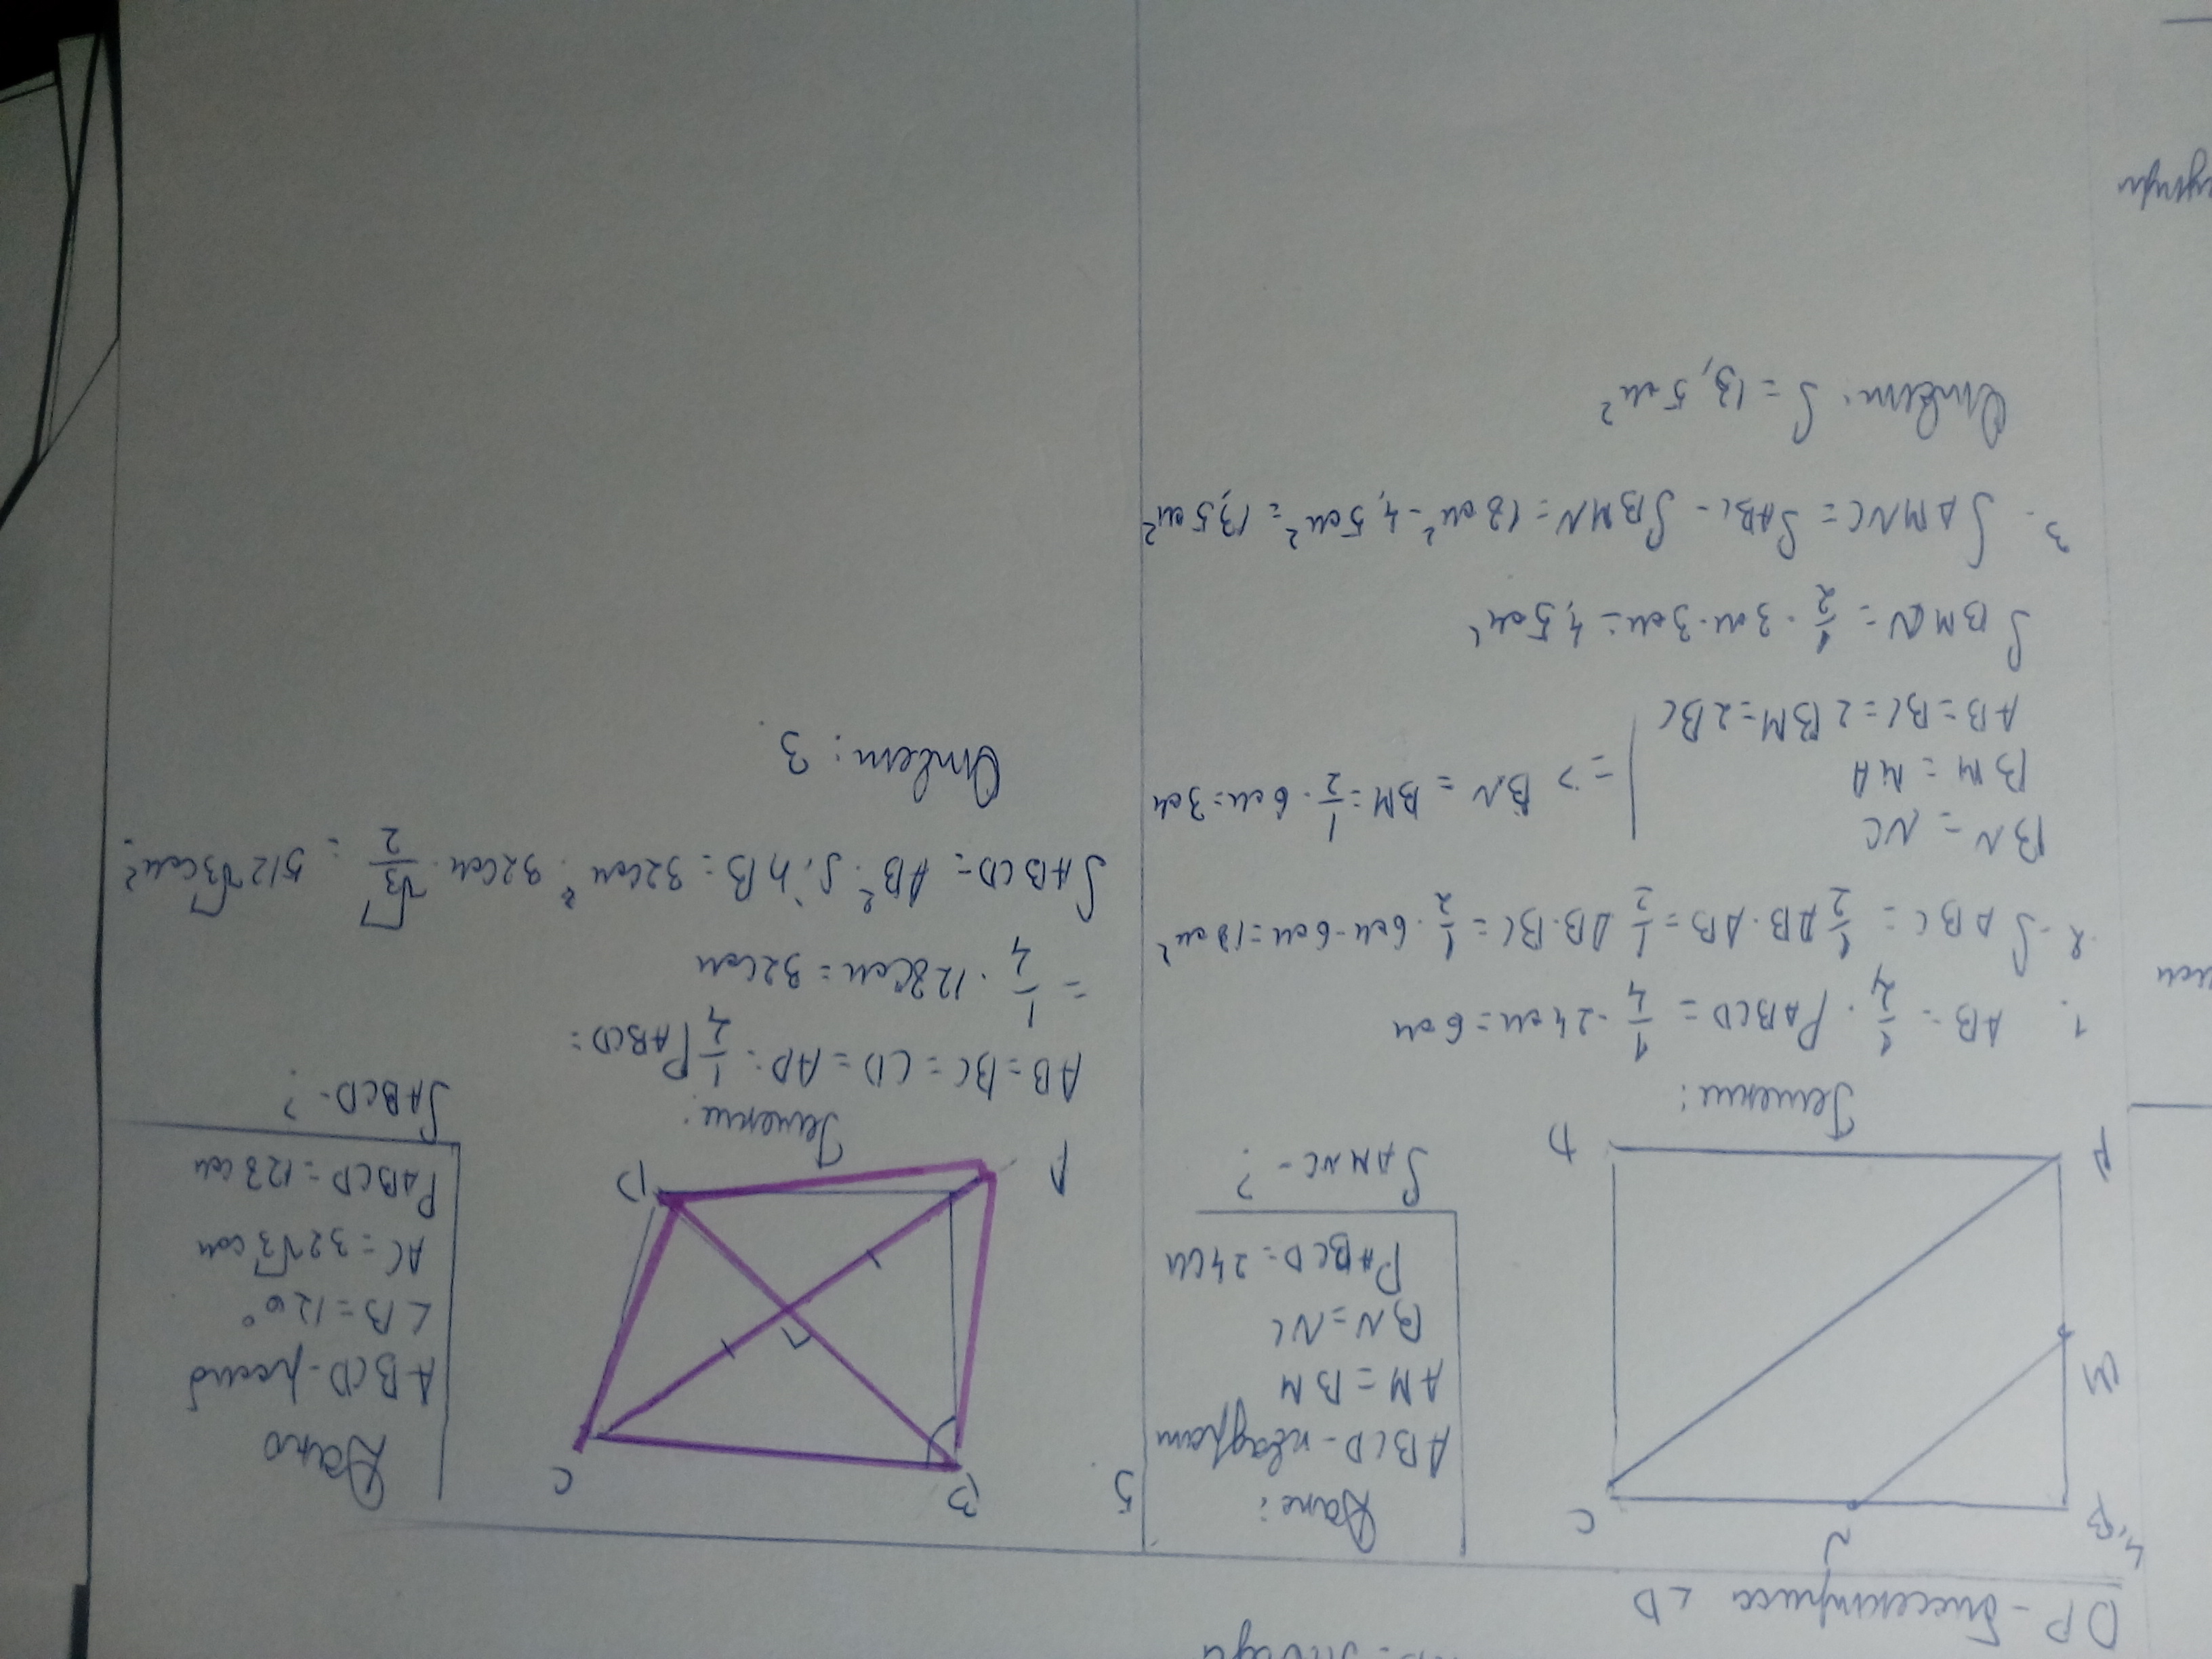 DP - биссектриса ∠D
4.
B
N
C
M
A
D
Дано:
ABCD - квадрат
AM = BM
BN = NC
PABCD = 24 см
SAMNC - ?
Решение:
1. AB = 1/4 · PABCD = 1/4 · 24 см = 6 см
2. SABC = 1/2 AB · AB = 1/2 AB · BC = 1/2 · 6 см · 6 см = 18 см²
BN = NC
BM = MA
AB = BC = 2BM = 2BC
=> BN = BM = 1/2 · 6 см = 3 см
SBMN = 1/2 · 3 см · 3 см = 4,5 см²
3. SAMNC = SABC - SBMN = 18 см² - 4,5 см² = 13,5 см²
Ответ: S = 13,5 см²
5
B
C
A
D
Дано
ABCD - ромб
∠B = 120°
AC = 32√3 см
PABCD = 128 см
SABCD - ?
Решение:
AB = BC = CD = AD = 1/4 PABCD =
= 1/4 · 128 см = 32 см
SABCD = AB² · sin B = 32 см · 32 см · √3/2 = 512√3 см².
Ответ: 3.